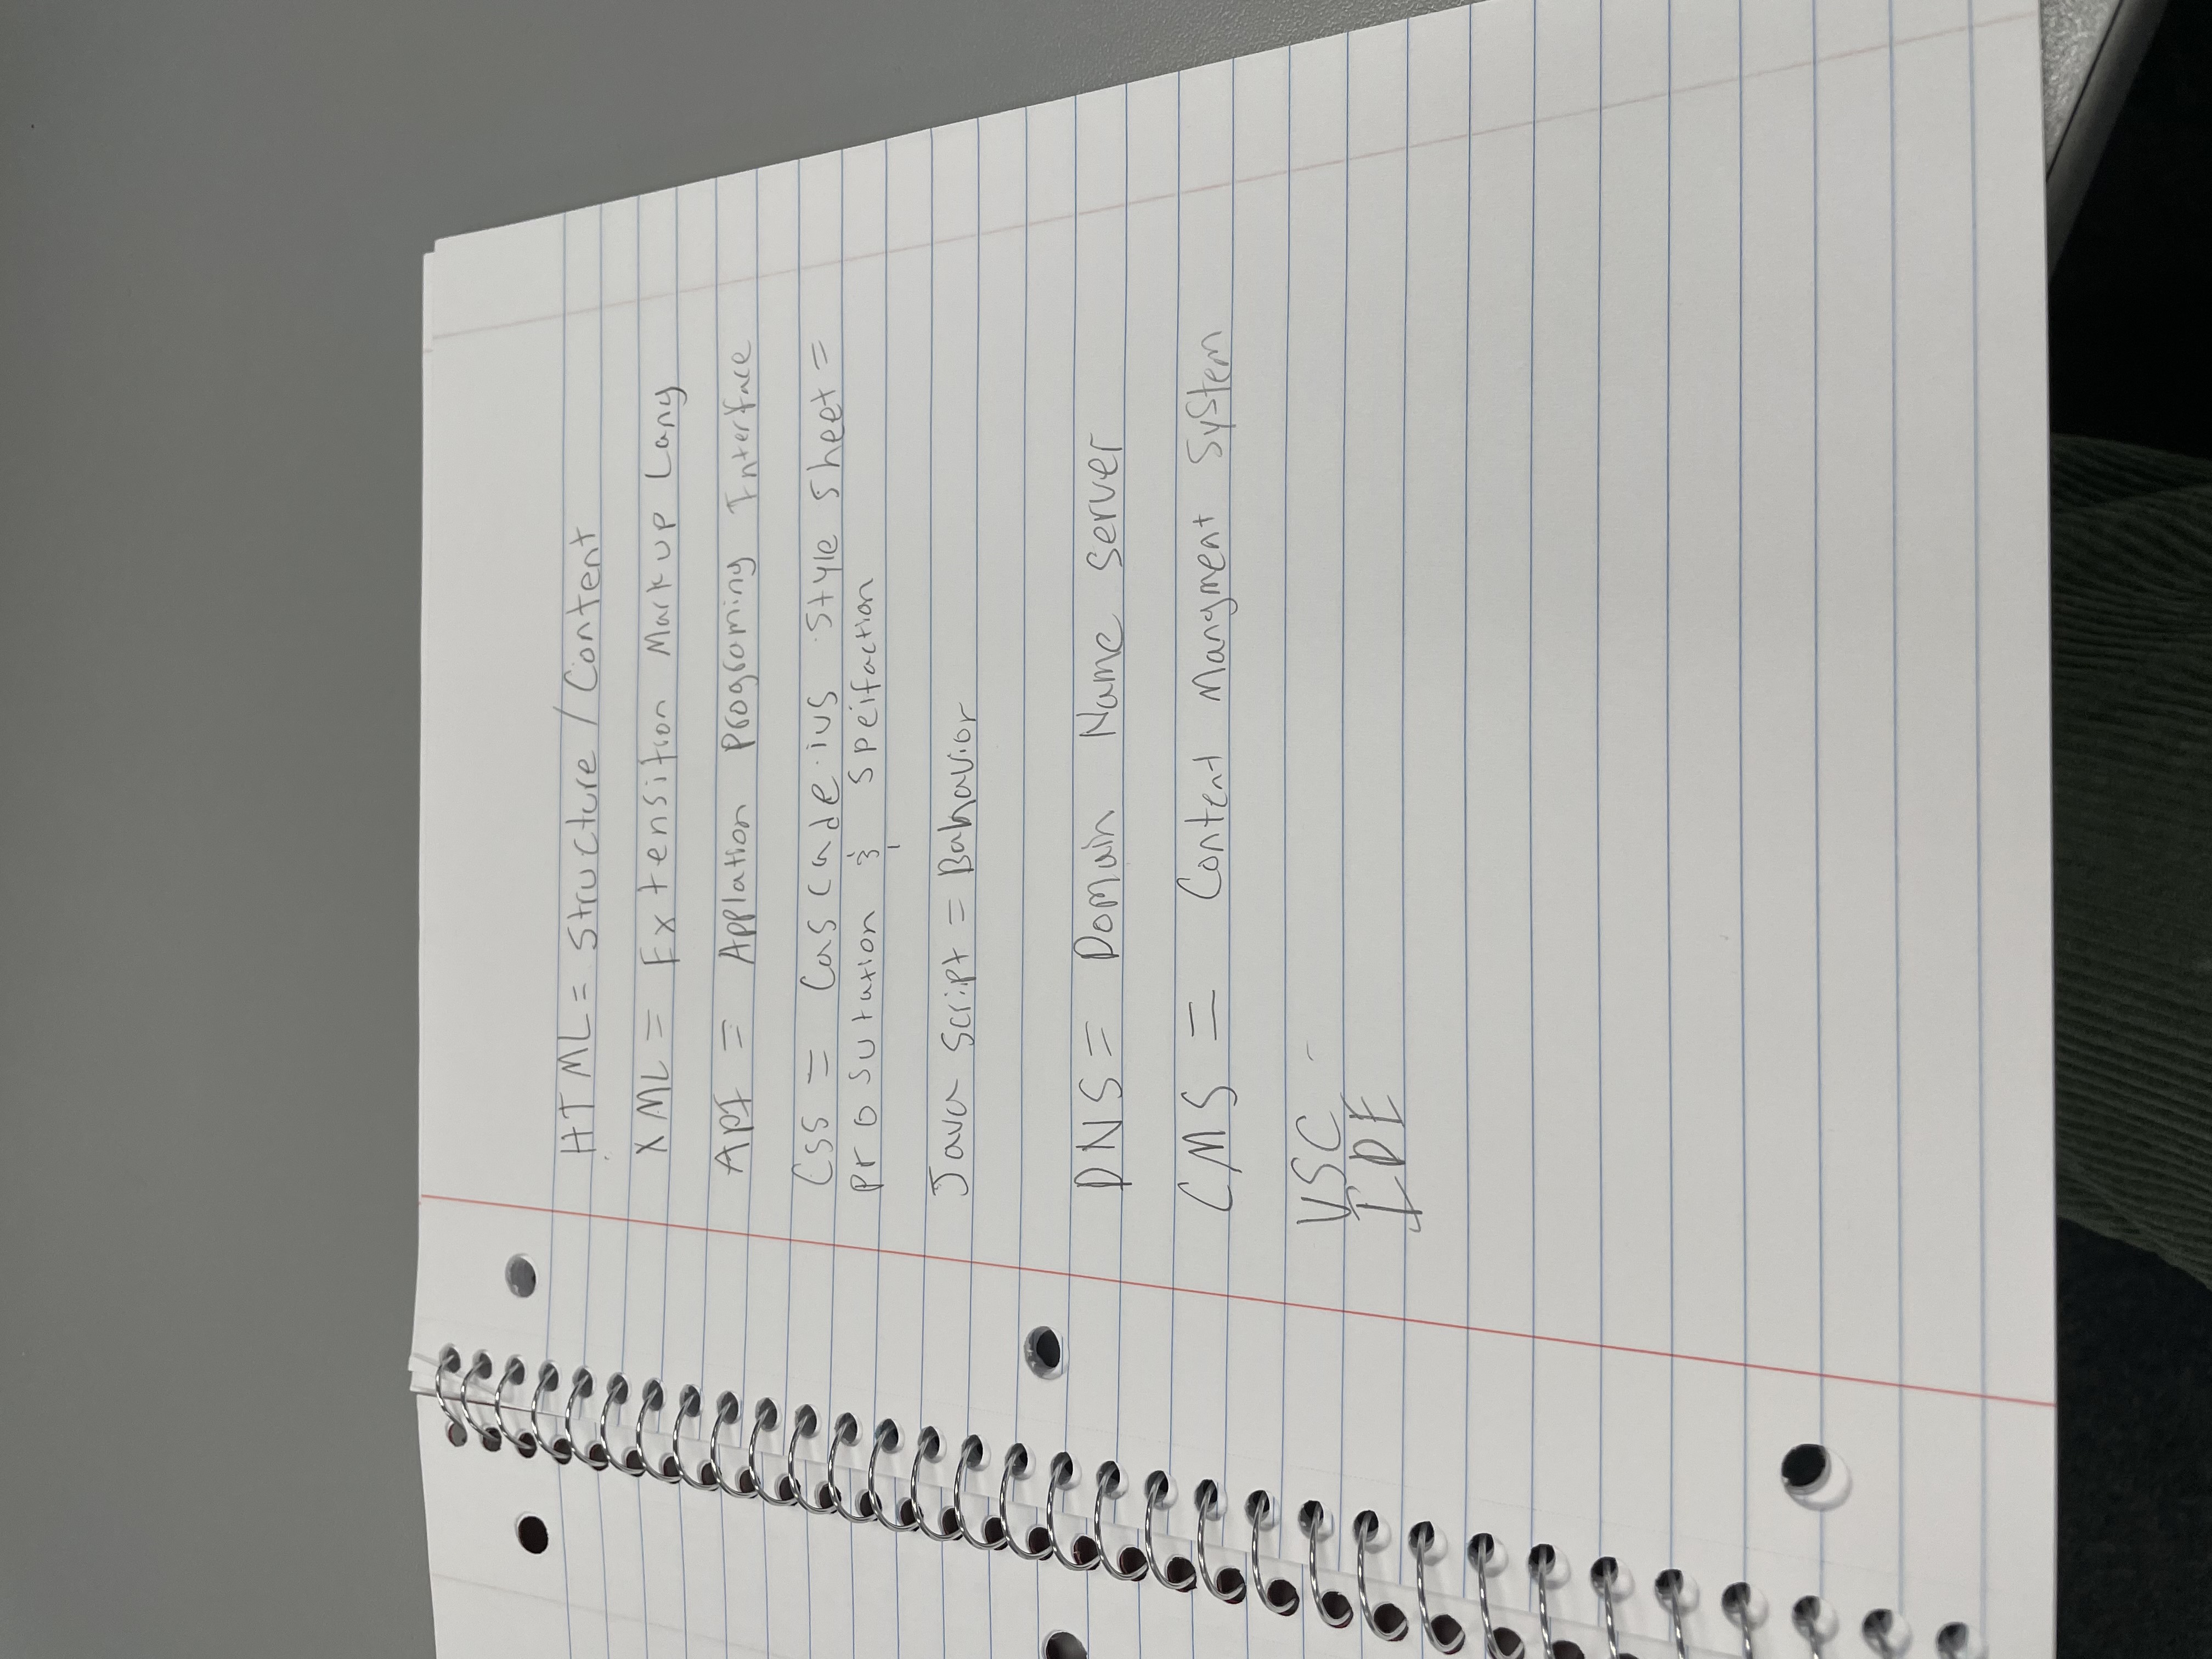 HTML = Structure / Content
XML = Extensition Mark up Lang
API = Applation Programing Interface
CSS = Cascade ius Style Sheet =
Prosutation & Speifaction
Java Script = Bahavior
DNS = Domain Name Server
CMS = Content Managment System
VSC -
IDE